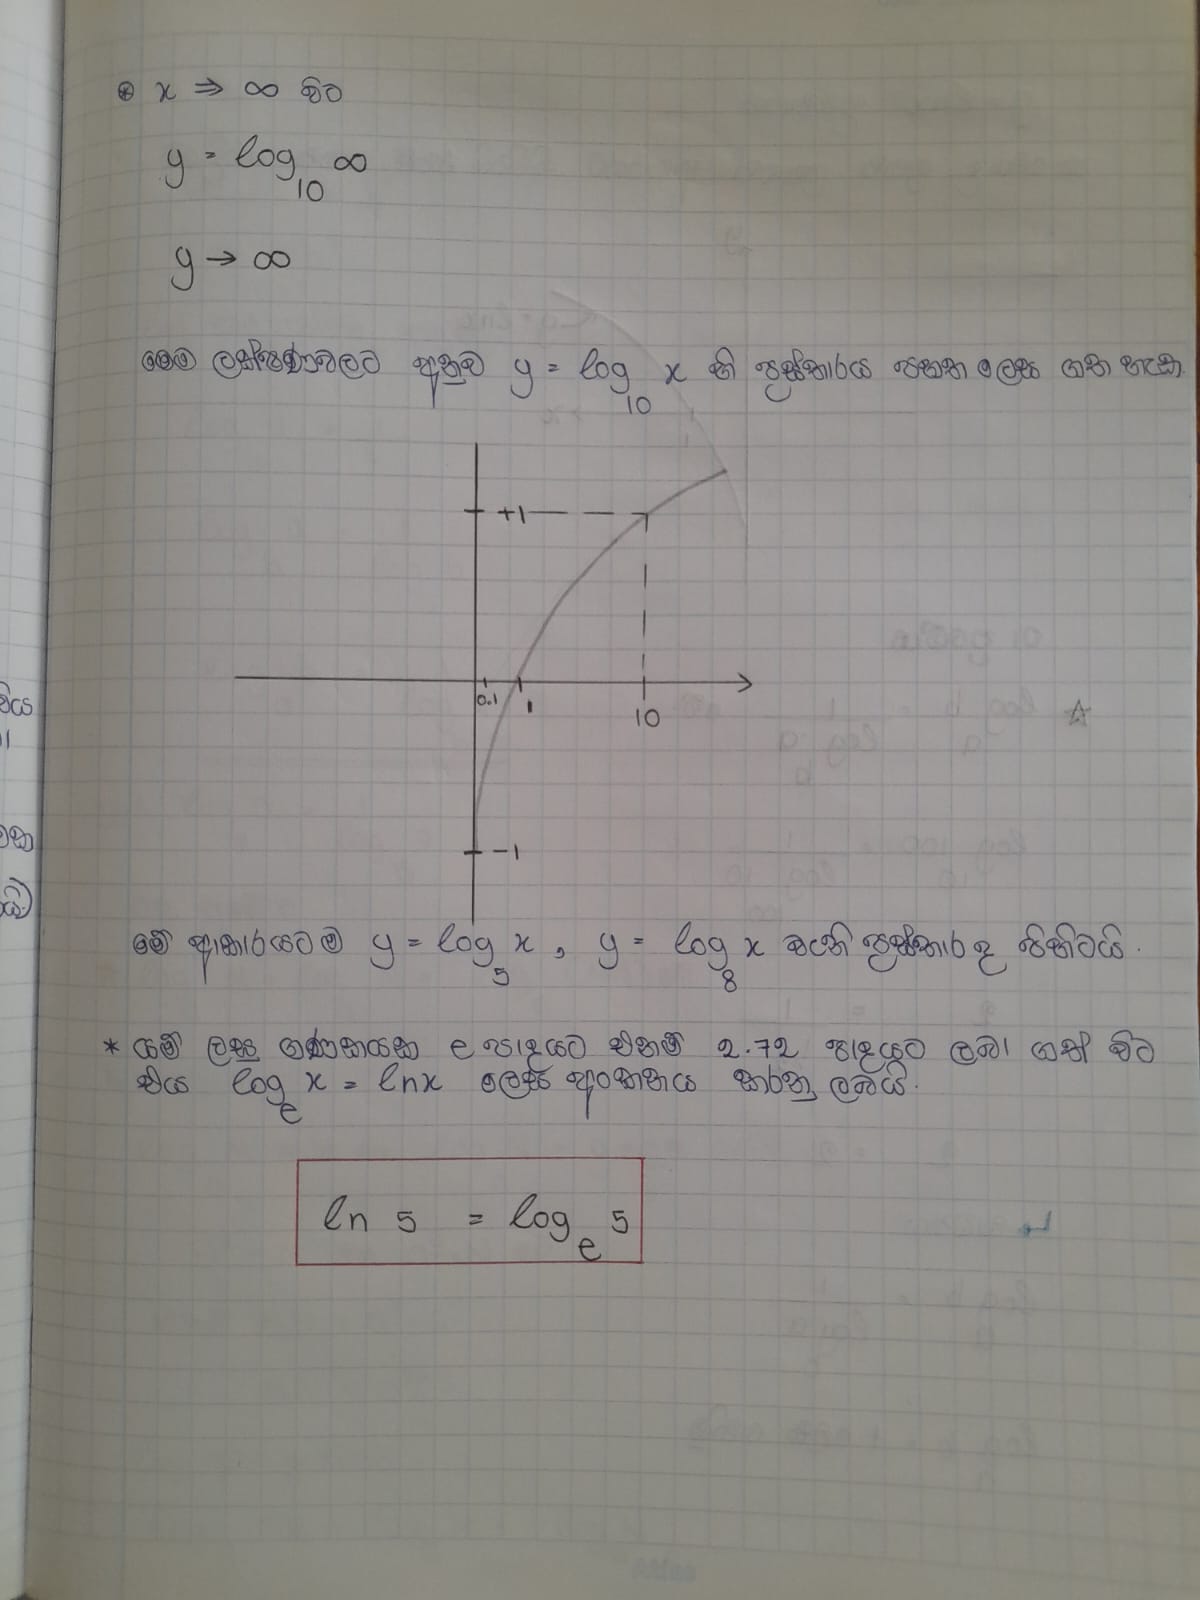 ⊛ x ⇒ ∞ විට
y = log₁₀ ∞
y → ∞
මෙම ලක්ෂණවලට අනුව y = log₁₀ x හි ප්‍රස්තාරය පහත ලෙස ගත හැක
+1
0.1 1 10
-1
මේ ආකාරයටම y = log₅ x , y = log₈ x වැනි ප්‍රස්තාර ද පිහිටයි.
* යම් ලඝු ගණකයක e පාදයට එනම් 2.72 පාදයට ලබා ගත් විට
එය logₑ x = lnx ලෙස අංකනය කරනු ලබයි.
ln 5 = logₑ 5